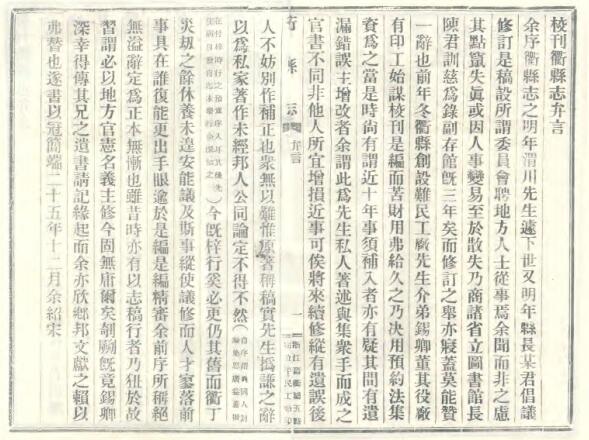 校刊衢縣志弁言
余序衢縣志之明年渭川先生遽下世又明年縣長某君倡議
修訂是稿設所謂委員會聘地方人士從事焉余聞而非之慮
其點竄失眞或因人事變易至於散失乃商諸省立圖書館長
陳君訓慈爲錄副存館旣三年矣而修訂之舉亦寢蓋莫能贊
一辭也前年冬衢縣創設難民工廠先生介弟錫卿董其役廠
有印工始謀校刊是編而苦財用弗給久之乃決用預約法集
資爲之當是時尙有謂近十年事須補入者亦有疑其間有遺
漏錯誤主增改者余謂此爲先生私人著述與集衆手而成之
官書不同非他人所宜增損近事可俟將來續修縱有遺誤後
弁言
一
人不妨別作補正也衆無以難惟原著稱稿實先生撝謙之辭
以爲私家著作未經邦人公同論定不得不然
今旣梓行奚必更仍其舊而衢丁
災刼之餘休養未遑安能議及斯事縱使議修而人才寥落前
事具在誰復能更出手眼逾於是編是編精審余前序所稱絕
無溢辭定爲正本無慚也雖昔時亦有以志稿行者乃狃於故
習謂必以地方官憲名義主修今固無庸爾矣剞劂旣竟錫卿
深幸得傳其兄之遺書請記緣起而余亦欣鄉邦文獻之賴以
弗替也遂書以冠簡端二十五年十二月余紹宋